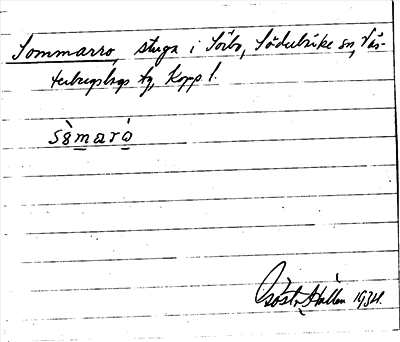 Sommarro, stuga i Sörbo, Söderbärke sn, Väs-
terbergslags tg, Kopp l.
sò̀maró
Gösta Hallén 1934.